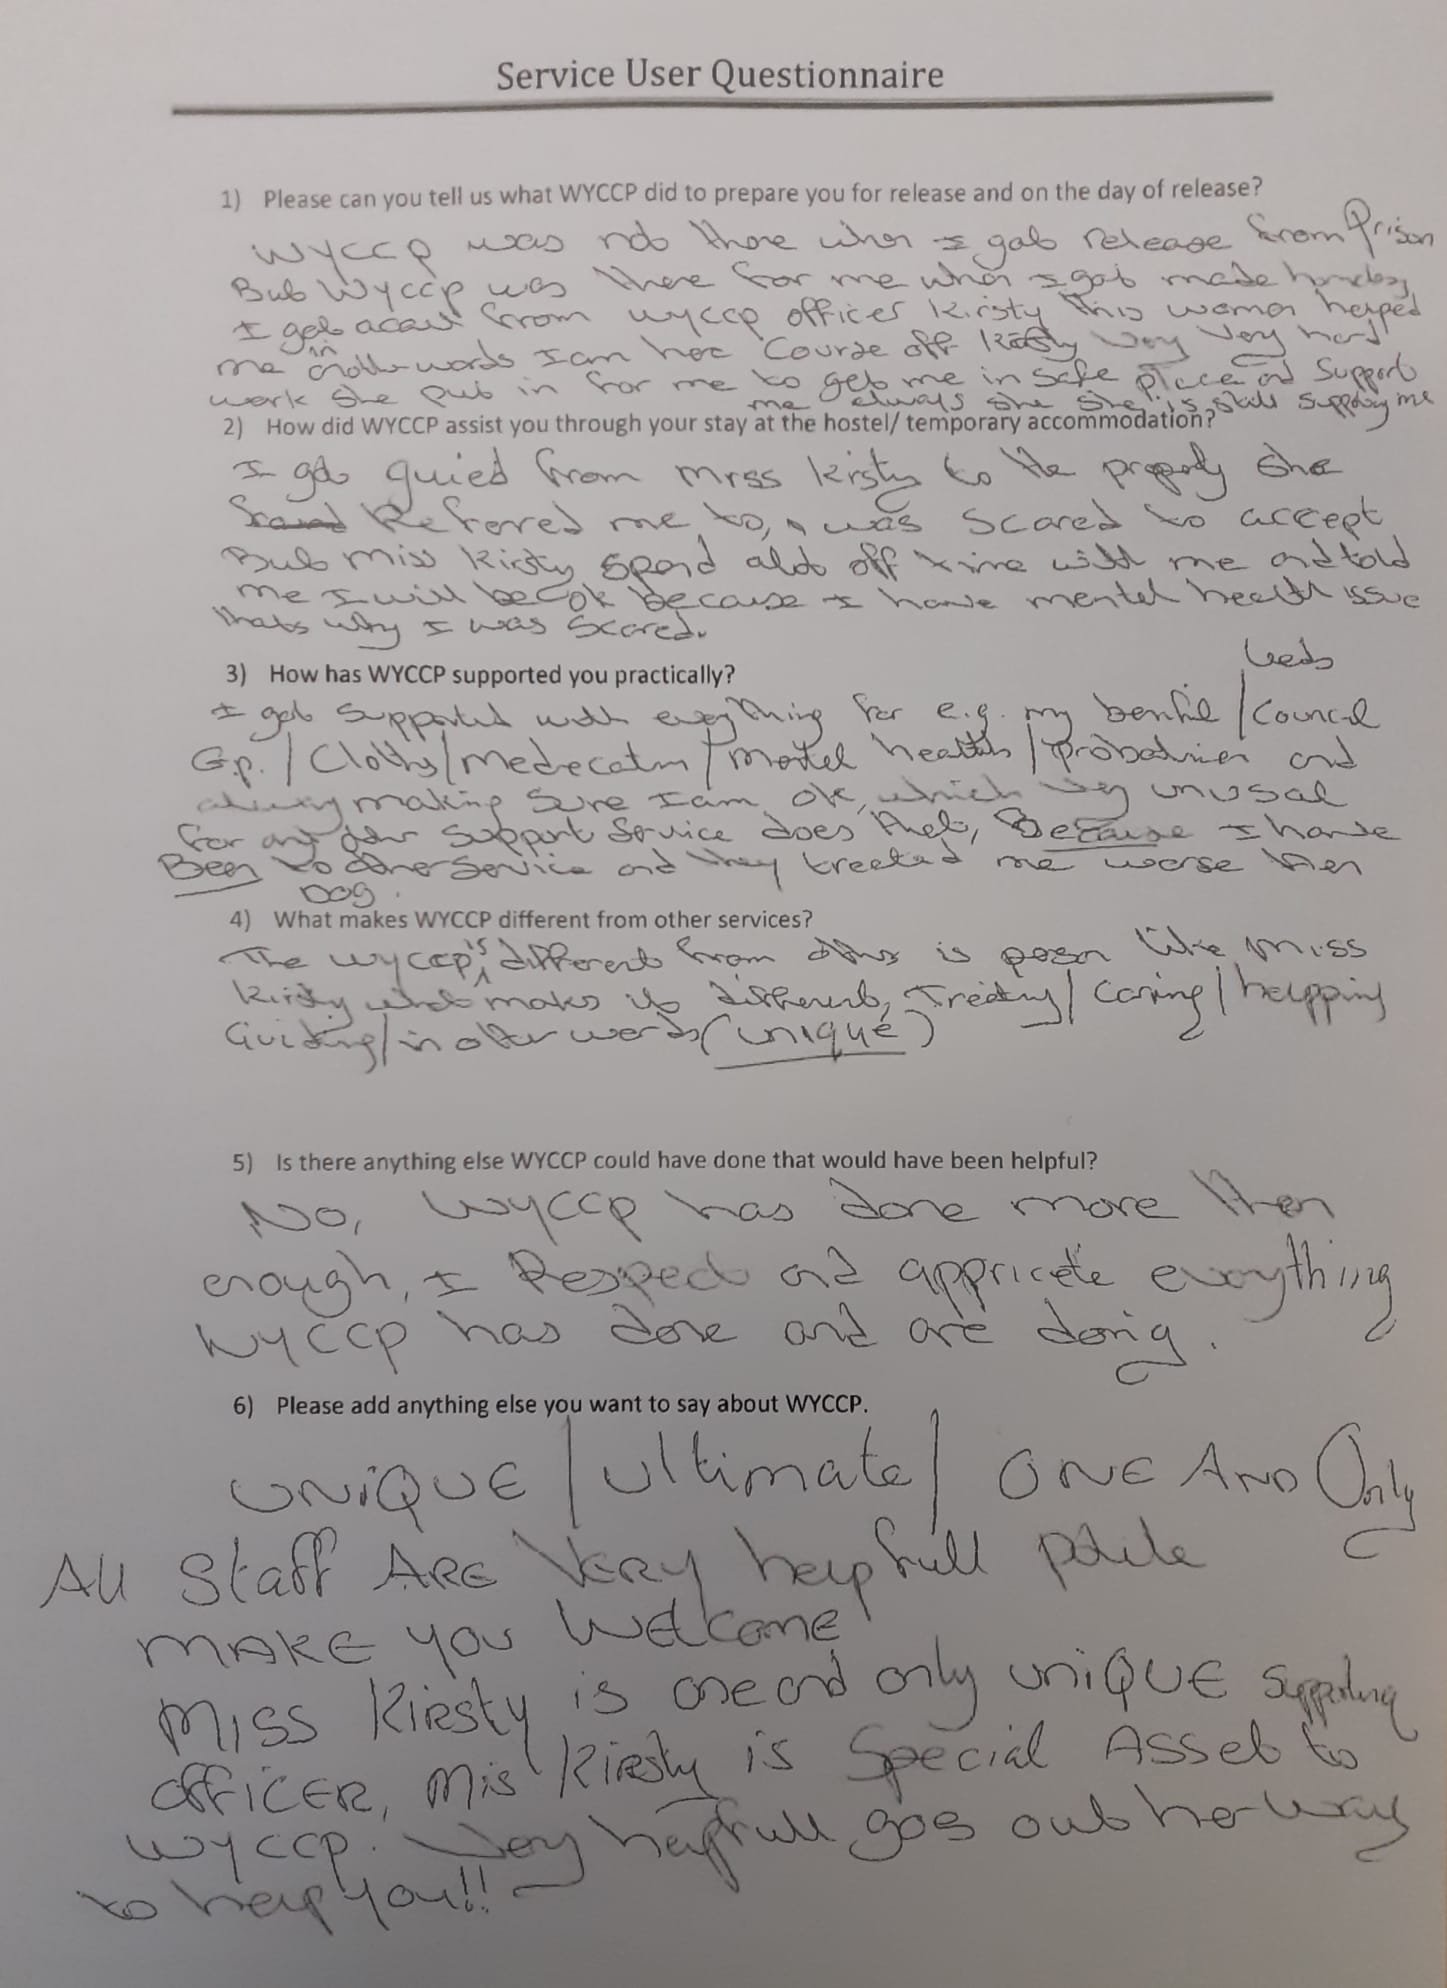 Service User Questionnaire
1) Please can you tell us what WYCCP did to prepare you for release and on the day of release?
WYCCP was not there when I gob release from Prison
Bub Wyccp was there for me when I gob made
I gob from wyccp officer Kirsty This woman helped
me in words I am Course off Kirsty Very Very hard
work she pub in for me to geb me in safe place and Support
me always she she is still supporting me
2) How did WYCCP assist you through your stay at the hostel/ temporary accommodation?
I gob quied from Miss Kirsty to the property She
Referred me to, was Scared to accept
Bub miss Kirsty spend alob off time with me and told
me I will be ok because I have mentel heelth issue
thats why I was Scared.
3) How has WYCCP supported you practically?
Leeds
I gob Supported with everything for e.g. my / Council
G.p. / / / health / and
always making Sure I am ok, which very unusal
for any Support Service does theb, Because I have
Been to other Service and they treeted me worse then
Dog.
4) What makes WYCCP different from other services?
The wyccp is differenb from is like Miss
Kirsty makes ib differenb, / Caring / helpping
Guiding / in other words (unique)
5) Is there anything else WYCCP could have done that would have been helpful?
No, Wyccp has done more then
enough, I Respect and appricete everything
WYCCP has done and are doing.
6) Please add anything else you want to say about WYCCP.
UNiQUE / ultimate / ONE AND Only
All Staff ARE VERY helpfull polite
MAKE you Welcome
Miss Kirsty is one and only uniQUE supporting
OFFiCER, Mis Kirsty is Special Asseb to
WYCCP. Very helpfull goes oub her way
to help you!!